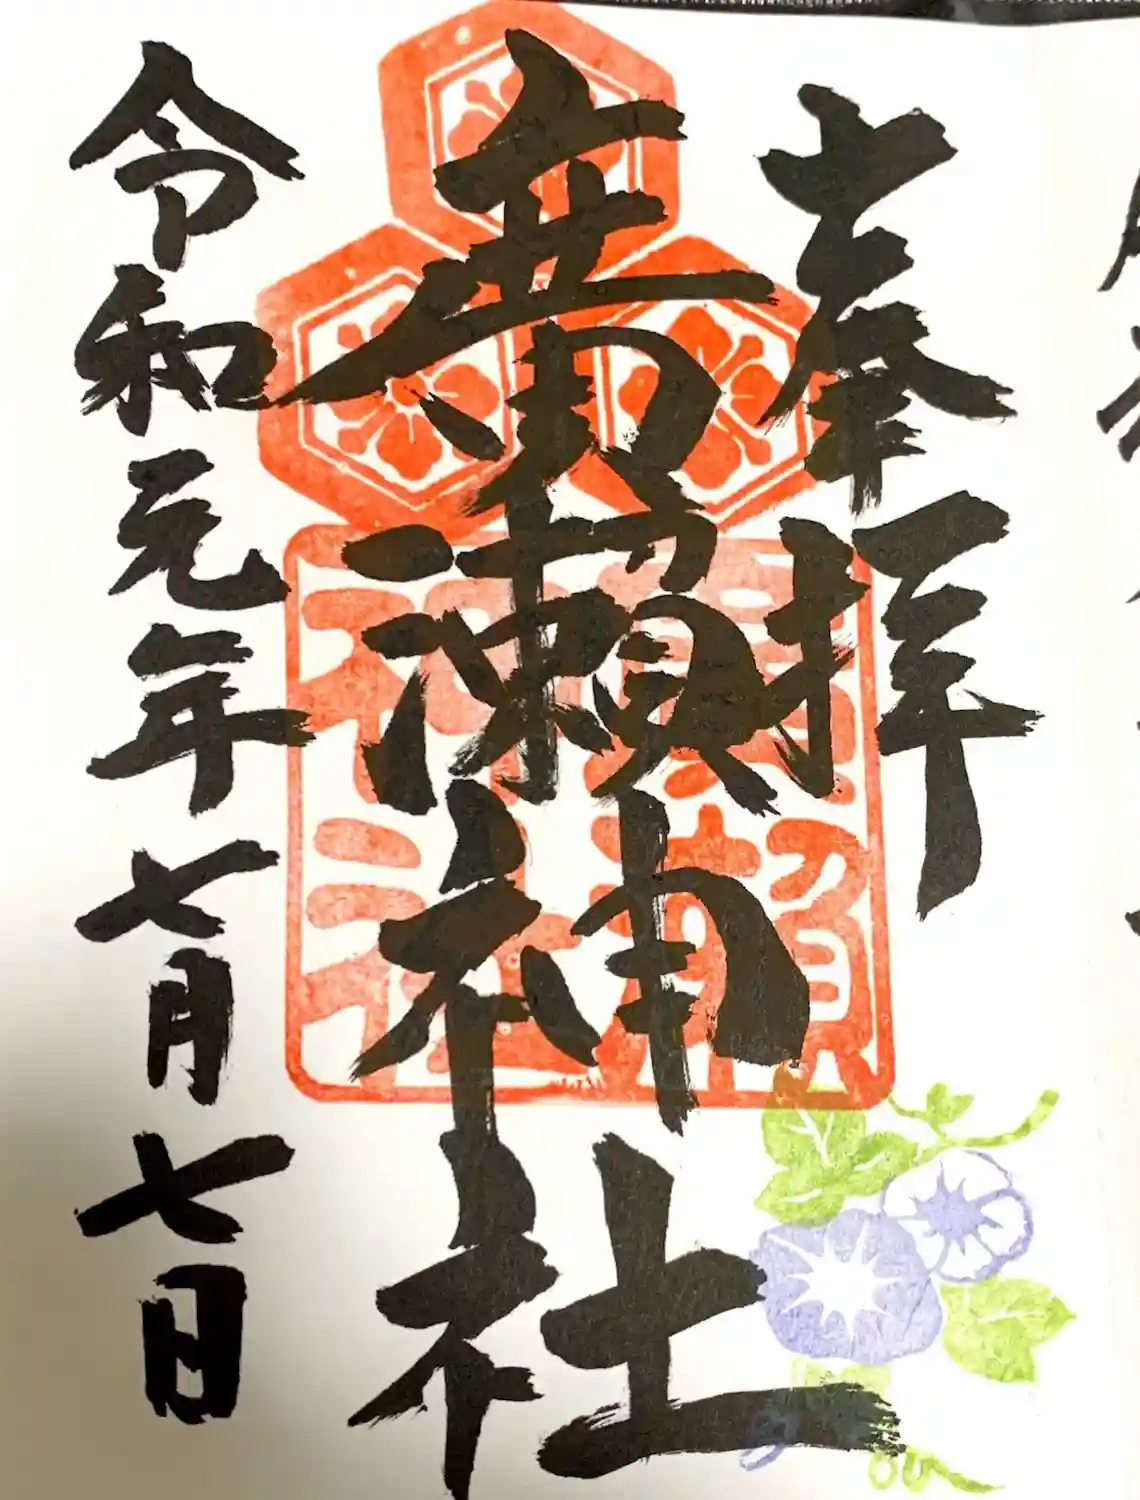 奉拝
廣瀬神社
令和元年七月七日
廣瀬
神社